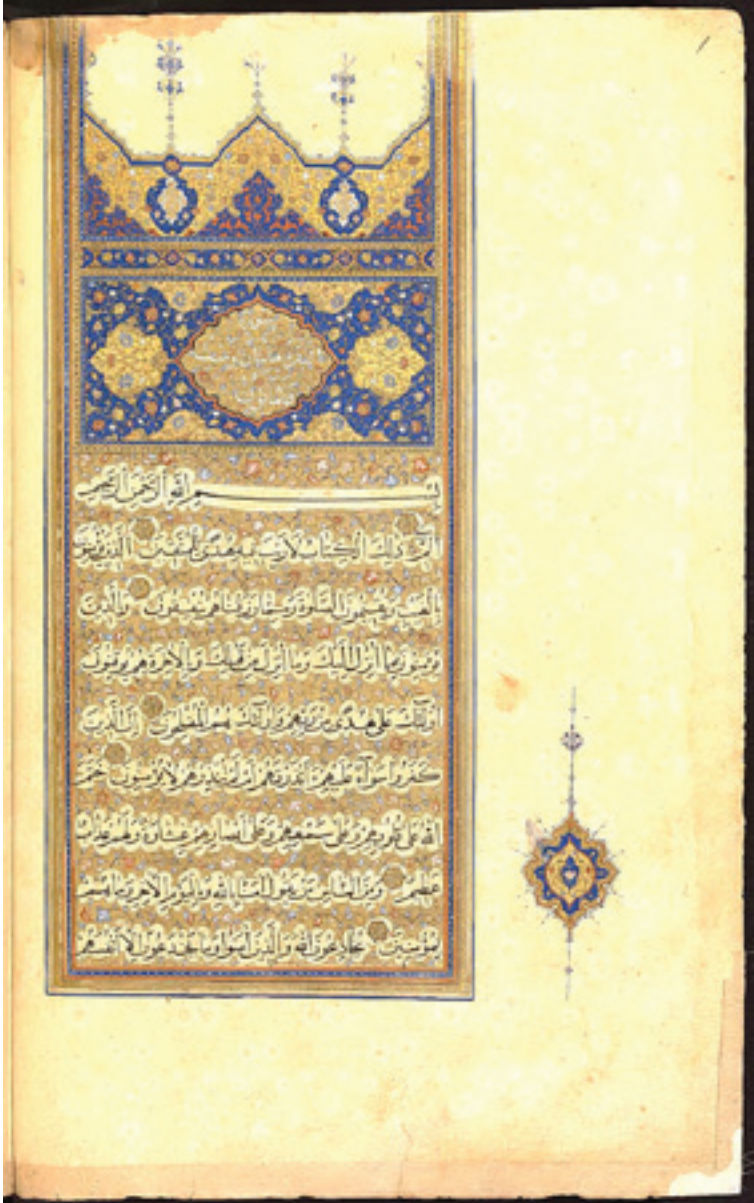 بسم الله الرحمن الرحيم
الم ذلك الكتاب لا ريب فيه هدى للمتقين الذين يؤمنون
بالغيب ويقيمون الصلوة ومما رزقناهم ينفقون والذين
يؤمنون بما أنزل إليك وما أنزل من قبلك وبالآخرة هم يوقنون
أولئك على هدى من ربهم وأولئك هم المفلحون إن الذين
كفروا سواء عليهم ءأنذرتهم أم لم تنذرهم لا يؤمنون ختم
الله على قلوبهم وعلى سمعهم وعلى أبصارهم غشاوة ولهم عذاب
عظيم ومن الناس من يقول آمنا بالله وباليوم الآخر وما هم
بمؤمنين يخادعون الله والذين آمنوا وما يخدعون إلا أنفسهم